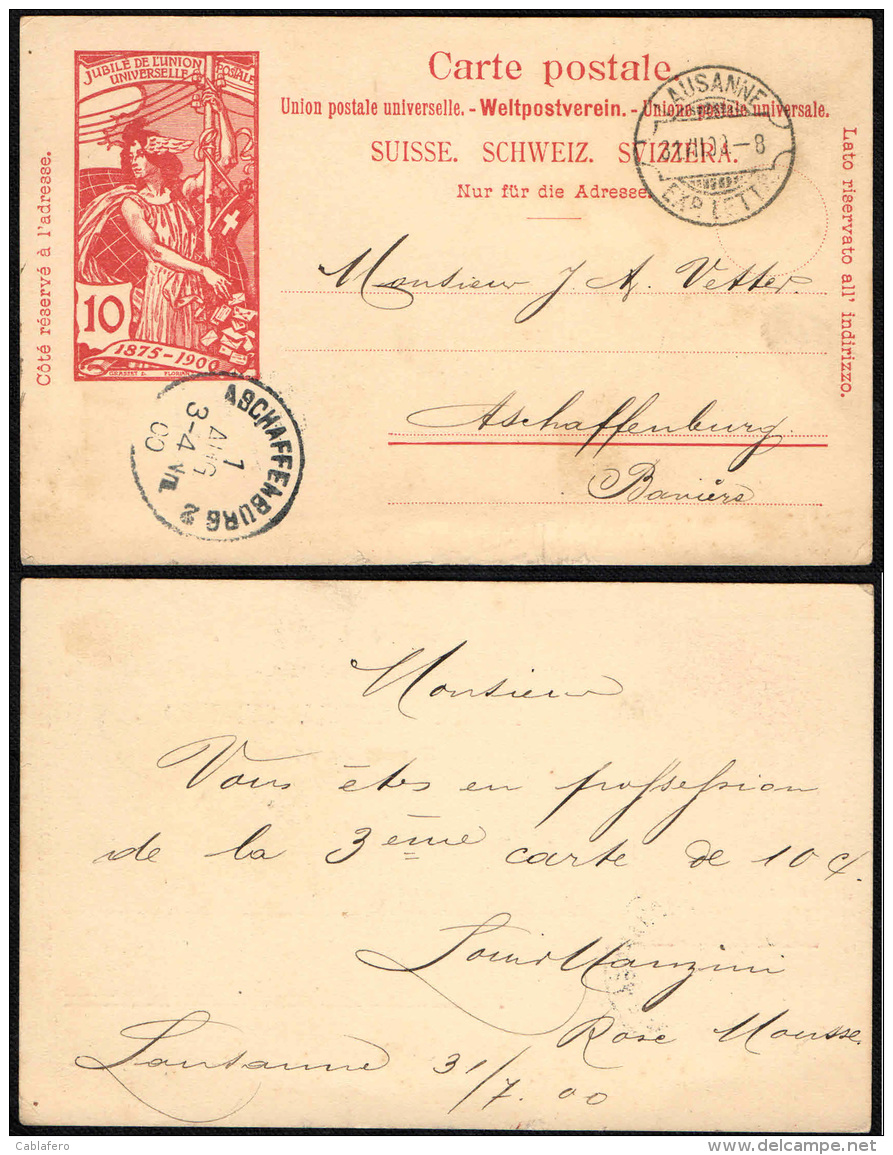 JUBILÉ DE L'UNION
UNIVERSELLE POSTALE
10
1875-1900
GRASSET D.
FLORIAN
Côté réservé à l'adresse.
Carte postale.
Union postale universelle. - Weltpostverein. - Unione postale universale.
SUISSE. SCHWEIZ. SVIZZERA.
Nur für die Adresse.
Lato riservato all' indirizzo.
LAUSANNE
31.VII.00.-8
EXP. LETTR.
Monsieur J. A. Vetter.
Aschaffenburg.
Bavière
ASCHAFFENBURG 2
1
AUG
3-4 Nm.
00
Monsieur
Vous êtes en possession
de la 3ème carte de 10 c.
Louis Manzini
Rose Mousse.
Lausanne 31/7.00
Cablafero
www.delcampe.net